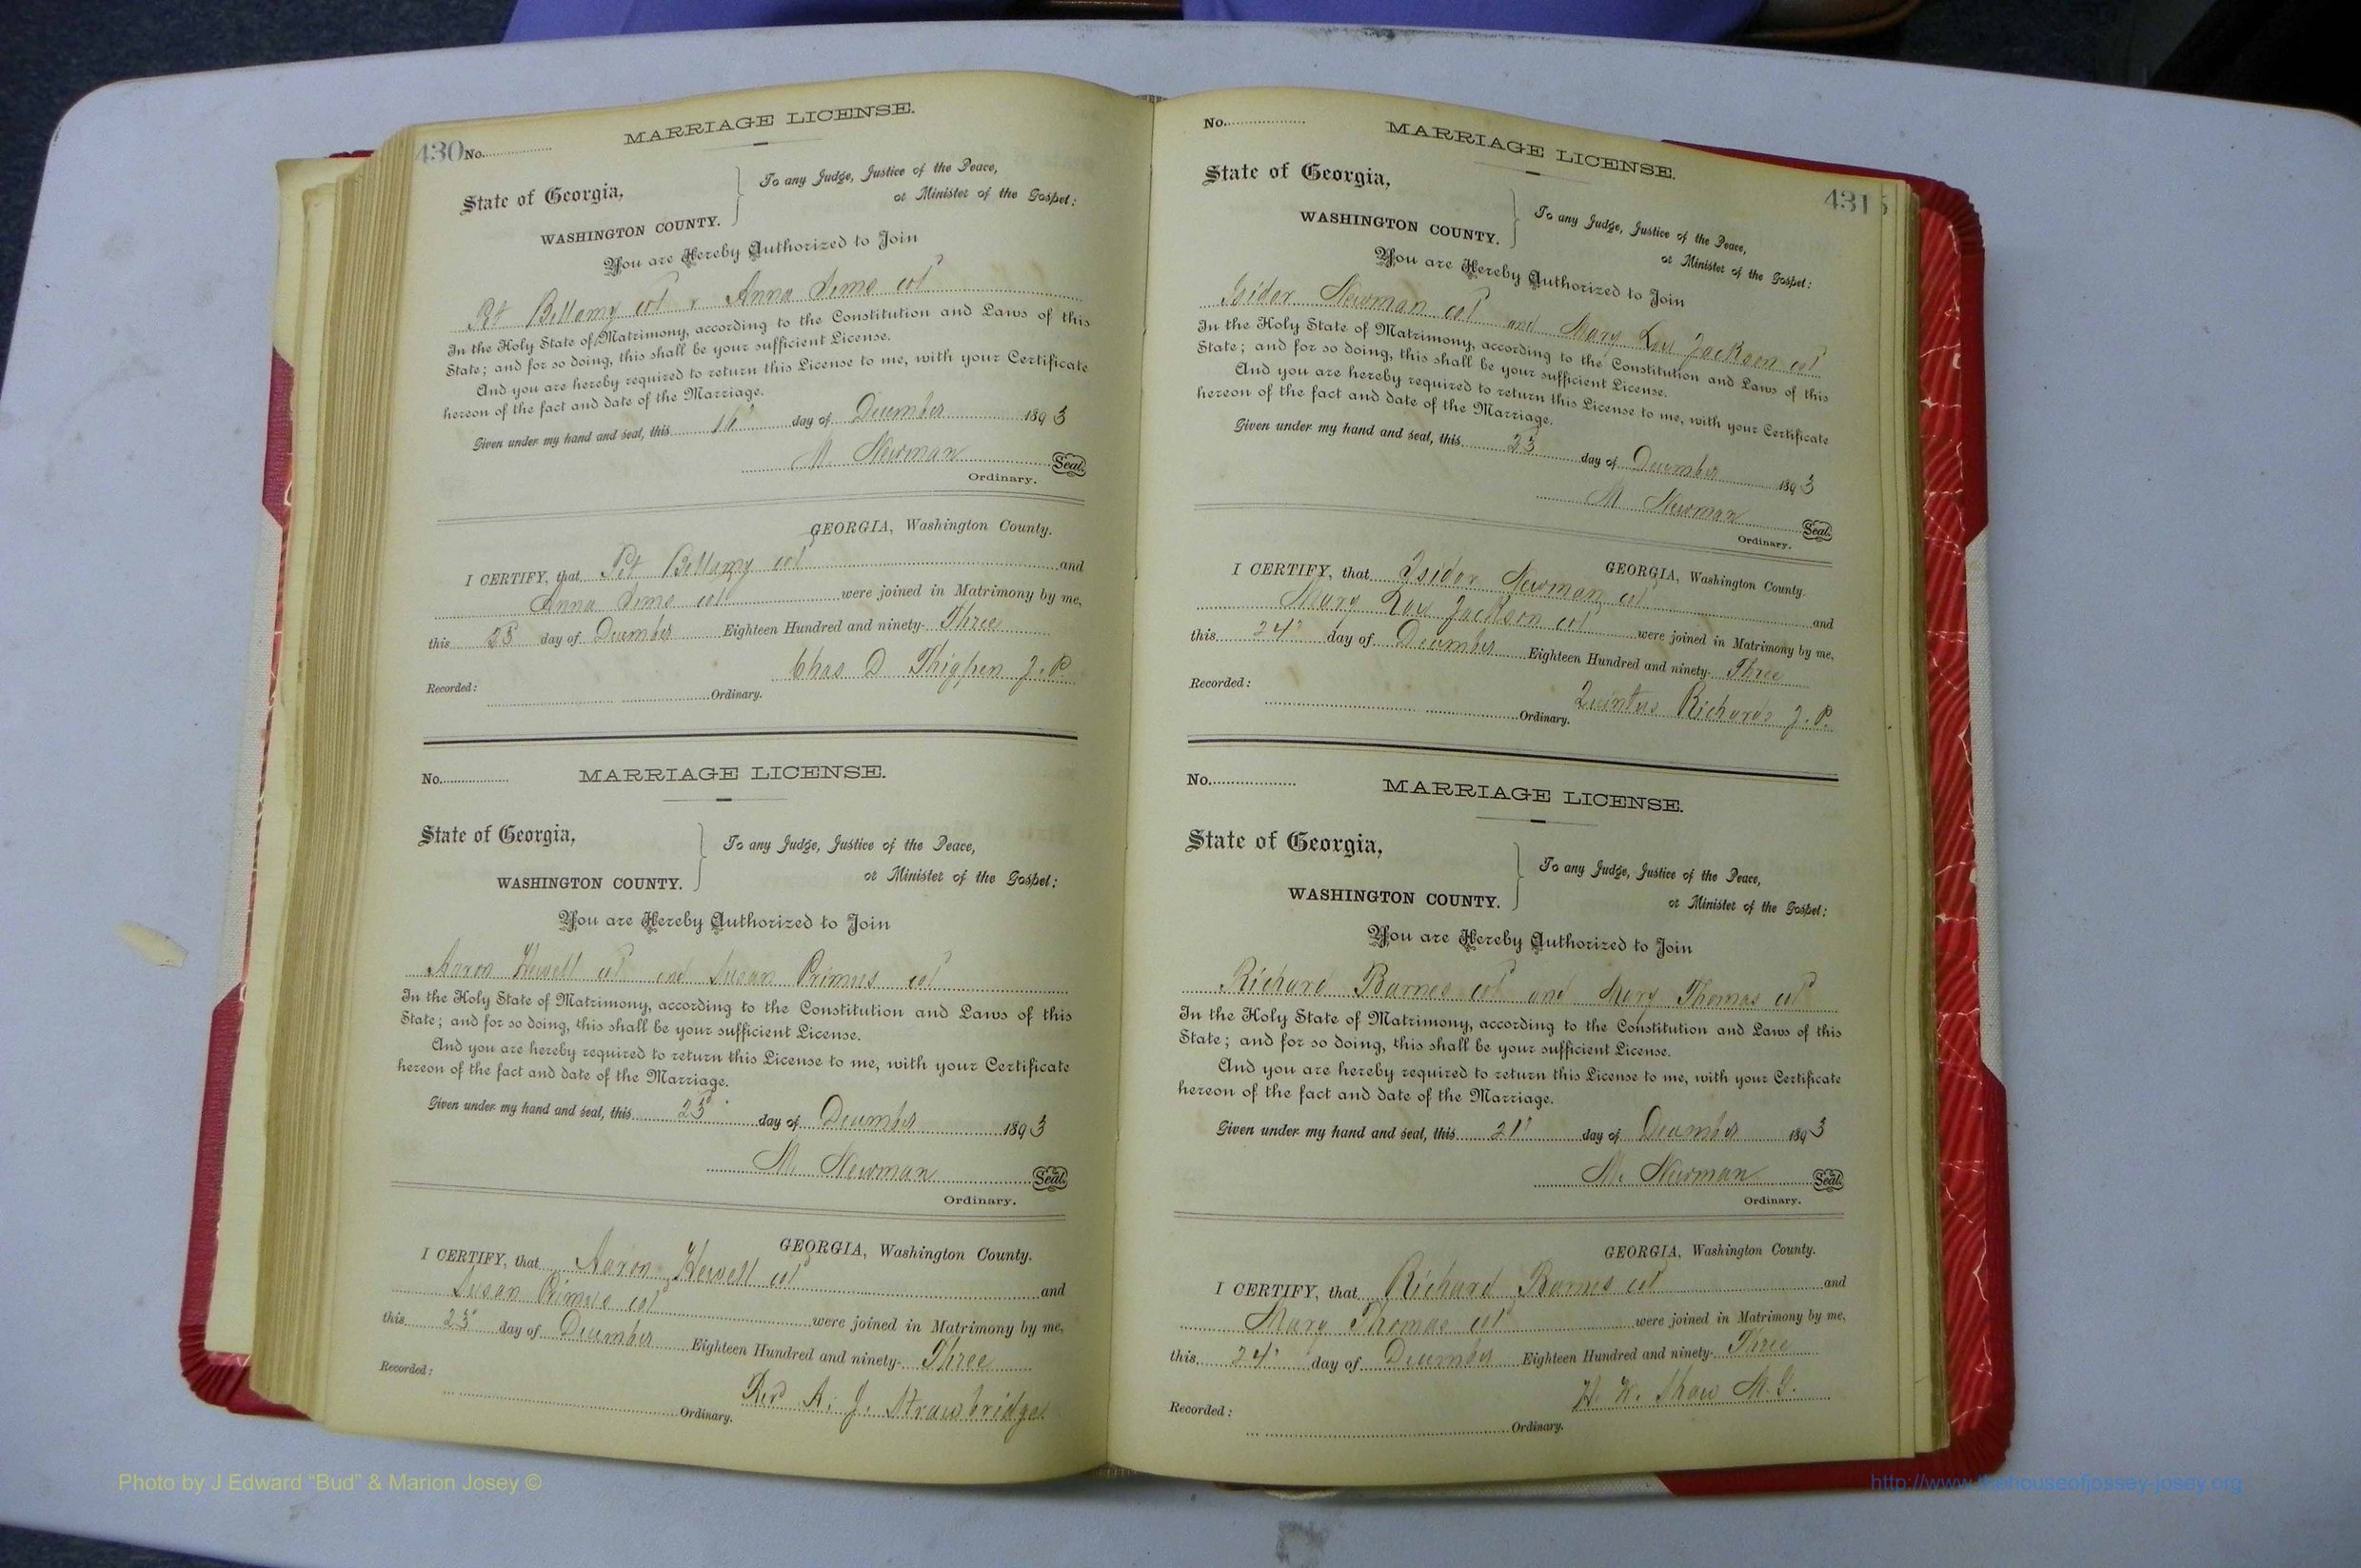 430 No.
MARRIAGE LICENSE.
State of Georgia,
WASHINGTON COUNTY.
To any Judge, Justice of the Peace,
or Minister of the Gospel:
You are Hereby Authorized to Join
Pet Bellamy col & Anna Sims col
In the Holy State of Matrimony, according to the Constitution and Laws of this
State; and for so doing, this shall be your sufficient License.
And you are hereby required to return this License to me, with your Certificate
hereon of the fact and date of the Marriage.
Given under my hand and seal, this day of December 1893
M. Newman Seal.
Ordinary.
GEORGIA, Washington County.
I CERTIFY, that Pet Bellamy col and
Anna Sims col were joined in Matrimony by me,
this 25 day of December Eighteen Hundred and ninety- Three
Chas D Thigpen J. P.
Recorded: Ordinary.
No.
MARRIAGE LICENSE.
State of Georgia,
WASHINGTON COUNTY.
To any Judge, Justice of the Peace,
or Minister of the Gospel:
You are Hereby Authorized to Join
Aaron Hewell col and Susan Primus col
In the Holy State of Matrimony, according to the Constitution and Laws of this
State; and for so doing, this shall be your sufficient License.
And you are hereby required to return this License to me, with your Certificate
hereon of the fact and date of the Marriage.
Given under my hand and seal, this 23 day of December 1893
M. Newman Seal.
Ordinary.
GEORGIA, Washington County.
I CERTIFY, that Aaron Hewell col and
Susan Primus col were joined in Matrimony by me,
this 23 day of December Eighteen Hundred and ninety- Three
Rev A. J. Strawbridge
Recorded: Ordinary.
No.
MARRIAGE LICENSE.
431
State of Georgia,
WASHINGTON COUNTY.
To any Judge, Justice of the Peace,
or Minister of the Gospel:
You are Hereby Authorized to Join
Isidor Newman col and Mary Lou Jackson col
In the Holy State of Matrimony, according to the Constitution and Laws of this
State; and for so doing, this shall be your sufficient License.
And you are hereby required to return this License to me, with your Certificate
hereon of the fact and date of the Marriage.
Given under my hand and seal, this 23 day of December 1893
M Newman Seal.
Ordinary.
GEORGIA, Washington County.
I CERTIFY, that Isidor Newman col and
Mary Lou Jackson col were joined in Matrimony by me,
this 24 day of December Eighteen Hundred and ninety- Three
Quintus Richards J. P.
Recorded: Ordinary.
No.
MARRIAGE LICENSE.
State of Georgia,
WASHINGTON COUNTY.
To any Judge, Justice of the Peace,
or Minister of the Gospel:
You are Hereby Authorized to Join
Richard Barnes col and Mary Thomas col
In the Holy State of Matrimony, according to the Constitution and Laws of this
State; and for so doing, this shall be your sufficient License.
And you are hereby required to return this License to me, with your Certificate
hereon of the fact and date of the Marriage.
Given under my hand and seal, this 21 day of December 1893
M. Newman Seal.
Ordinary.
GEORGIA, Washington County.
I CERTIFY, that Richard Barnes col and
Mary Thomas col were joined in Matrimony by me,
this 24 day of December Eighteen Hundred and ninety- Three
Shaw M. G.
Recorded: Ordinary.
Photo by J Edward “Bud” & Marion Josey ©
http://www.thehouseofjossey-josey.org